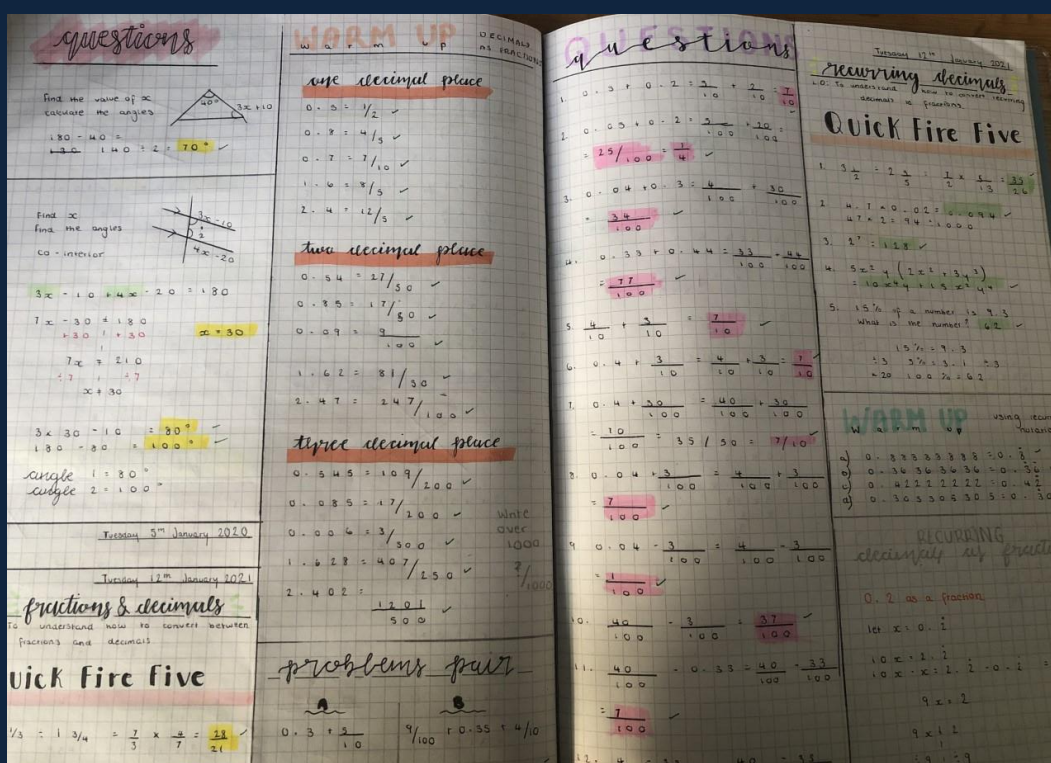 questions
Find the value of x
calculate the angles
40°
3x+10
180 - 40 =
140 ÷ 2 = 70° ✓
Find x
find the angles
co-interior
3x-10
2
4x-20
3x - 10 + 4x - 20 = 180
7x - 30 = 180
+30 +30
x = 30
7x = 210
÷7 ÷7
x = 30
3 x 30 - 10 = 80° ✓
180 - 80 = 100° ✓
angle 1 = 80°
angle 2 = 100°
Tuesday 5th January 2020
Tuesday 12th January 2021
fractions & decimals
To understand how to convert between
fractions and decimals
uick Fire Five
1/3 ÷ 1 3/4 = 7/3 x 4/7 = 28/21 ✓
WARM UP
warm up
DECIMALS
AS FRACTIONS
one decimal place
0.5 = 1/2 ✓
0.8 = 4/5 ✓
0.7 = 7/10 ✓
1.6 = 8/5 ✓
2.4 = 12/5 ✓
two decimal place
0.54 = 27/50 ✓
0.85 = 17/
0.09 = 9/100 ✓
1.62 = 81/50 ✓
2.47 = 247/100 ✓
three decimal place
0.545 = 109/200 ✓
0.085 = 17/200 ✓
0.006 = 3/500 ✓
1.628 = 407/250 ✓
2.402 =
1201/500 ✓
Write
over
1000
?/1000
problems pair
A
B
0.3 + 5/10
9/100 + 0.35 + 4/10
QUESTIONS
questions
1. 0.5 + 0.2 = 5/10 + 2/10 = 7/10
2. 0.05 + 0.2 = 5/100 + 20/100
= 25/100 = 1/4 ✓
3. 0.04 + 0.3 = 4/100 + 30/100
= 34/100 ✓
4. 0.33 + 0.44 = 33/100 + 44/100
= 77/100 ✓
5. 4/10 + 3/10 = 7/10 ✓
6. 0.4 + 3/10 = 4/10 + 3/10 = 7/10 ✓
7. 0.4 + 30/100 = 40/100 + 30/100
= 70/100 = 35/50 = 7/10 ✓
8. 0.04 + 3/100 = 4/100 + 3/100
= 7/100 ✓
9 0.04 - 3/100 = 4/100 - 3/100
= 1/100 ✓
10. 40/100 - 3/100 = 37/100 ✓
11. 40/100 - 0.33 = 40/100 - 33/100
= 7/100 ✓
Tuesday 12th January 2021
recurring decimals
L.O: To understand how to convert recurring
decimals & fractions
Quick Fire Five
1.
2. 4.7 x 0.02 = 0.094 ✓
47 x 2 = 94 ÷ 1000
3. 2⁷ = 128 ✓
4. 5x²y (2x² + 3y³)
= 10x⁴y + 15x²y⁴ ✓
5. 15% of a number is 9.3
What is the number? 62 ✓
15% = 9.3
÷3 5% = 3.1 ÷3
x20 100% = 62
WARM UP
warm up
using
a) 0.83333333 = 0.83̇ ✓
b) 0.36363636 = 0.3̇6̇
c) 0.42222222 = 0.42̇
d)
RECURRING
decimals as
0.2 as a fraction
let x = 0.2̇
10x = 2.2̇
10x - x = 2.2̇ - 0.2̇ =
9x = 2
9x = 2
÷9 ÷9